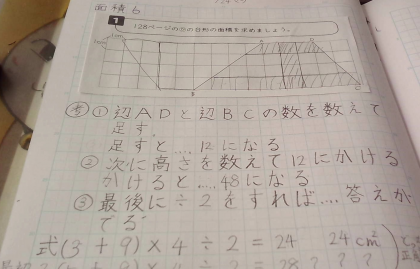 面積6
1 128ページの⑤の台形の面積を求めましょう。
考 ① 辺ADと辺BCの数を数えて
足す。
足すと....12になる
② 次に高さを数えて12にかける
かけると....48になる
③ 最後に÷2をすれば....答えが
でる
式(3+9)×4÷2=24 24cm²